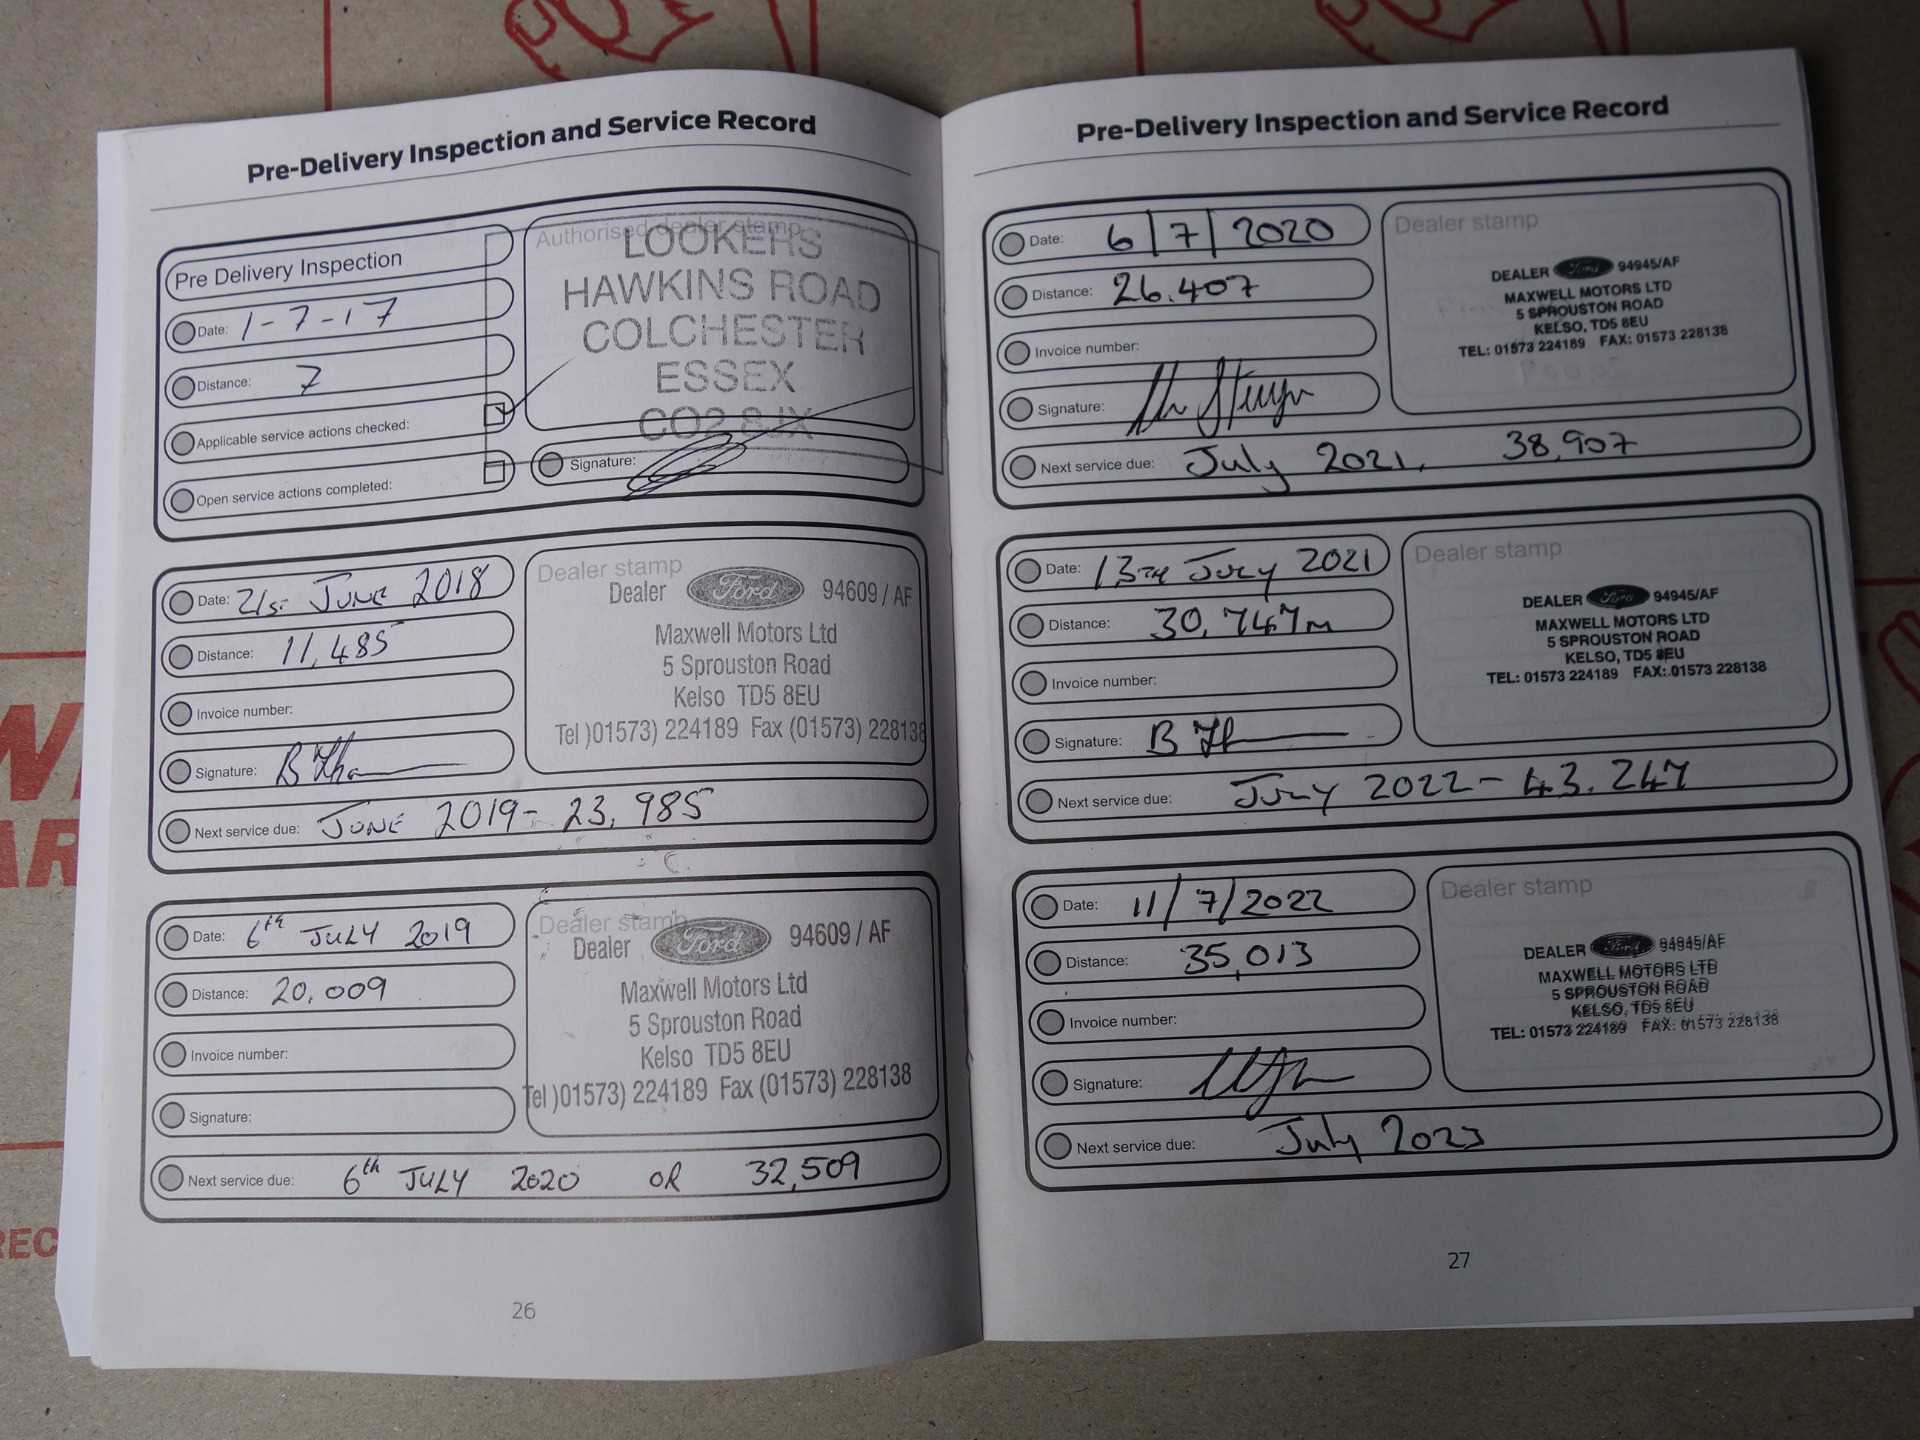 Pre-Delivery Inspection and Service Record
Pre Delivery Inspection
Date: 1-7-17
Distance: 7
Applicable service actions checked:
Open service actions completed:
Authorised dealer stamp
LOOKERS
HAWKINS ROAD
COLCHESTER
ESSEX
CO2 8JX
Signature:
Date: 21st JUNE 2018
Distance: 11,485
Invoice number:
Signature: B
Next service due: JUNE 2019 - 23,985
Dealer stamp
Dealer Ford 94609 / AF
Maxwell Motors Ltd
5 Sprouston Road
Kelso TD5 8EU
Tel )01573) 224189 Fax (01573) 228138
Date: 6th JULY 2019
Distance: 20,009
Invoice number:
Signature:
Next service due: 6th JULY 2020 OR 32,509
Dealer stamp
Dealer Ford 94609 / AF
Maxwell Motors Ltd
5 Sprouston Road
Kelso TD5 8EU
Tel )01573) 224189 Fax (01573) 228138
26
Pre-Delivery Inspection and Service Record
Date: 6/7/2020
Distance: 26.407
Invoice number:
Signature:
Next service due: July 2021, 38,907
Dealer stamp
DEALER Ford 94945/AF
MAXWELL MOTORS LTD
5 SPROUSTON ROAD
KELSO, TD5 8EU
TEL: 01573 224189 FAX: 01573 228138
Date: 13TH JULY 2021
Distance: 30,747m
Invoice number:
Signature: B
Next service due: JULY 2022 - 43.247
Dealer stamp
DEALER Ford 94945/AF
MAXWELL MOTORS LTD
5 SPROUSTON ROAD
KELSO, TD5 8EU
TEL: 01573 224189 FAX: 01573 228138
Date: 11/7/2022
Distance: 35,013
Invoice number:
Signature:
Next service due: July 2023
Dealer stamp
DEALER Ford 94945/AF
MAXWELL MOTORS LTD
5 SPROUSTON ROAD
KELSO, TD5 8EU
TEL: 01573 224189 FAX: 01573 228138
27